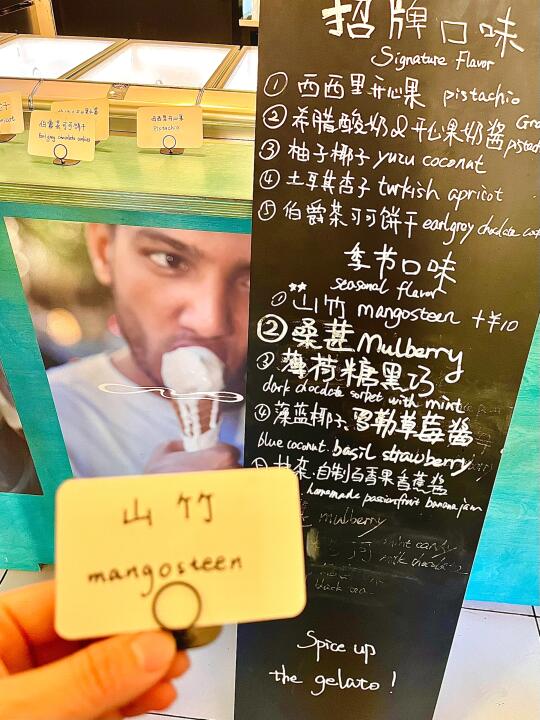 招牌口味
Signature Flavor
① 西西里开心果 pistachio
② 希腊酸奶&开心果奶酱
③ 柚子椰子 yuzu coconut
④ 土耳其杏子 turkish apricot
⑤ 伯爵茶可可饼干 earlgray chocolate
季节口味
seasonal flavor
① 山竹 mangosteen +¥10
② 桑葚 Mulberry
③ 薄荷糖黑巧
dark chocolate sorbet with mint
④ 藻蓝椰子,罗勒草莓酱
blue coconut. basil strawberry
抹茶.自制百香果香蕉酱
homemade passionfruit banana jam
mulberry
Spice up
the gelato!
伯爵茶可可饼干
西西里开心果
Pistachio
山竹
mangosteen